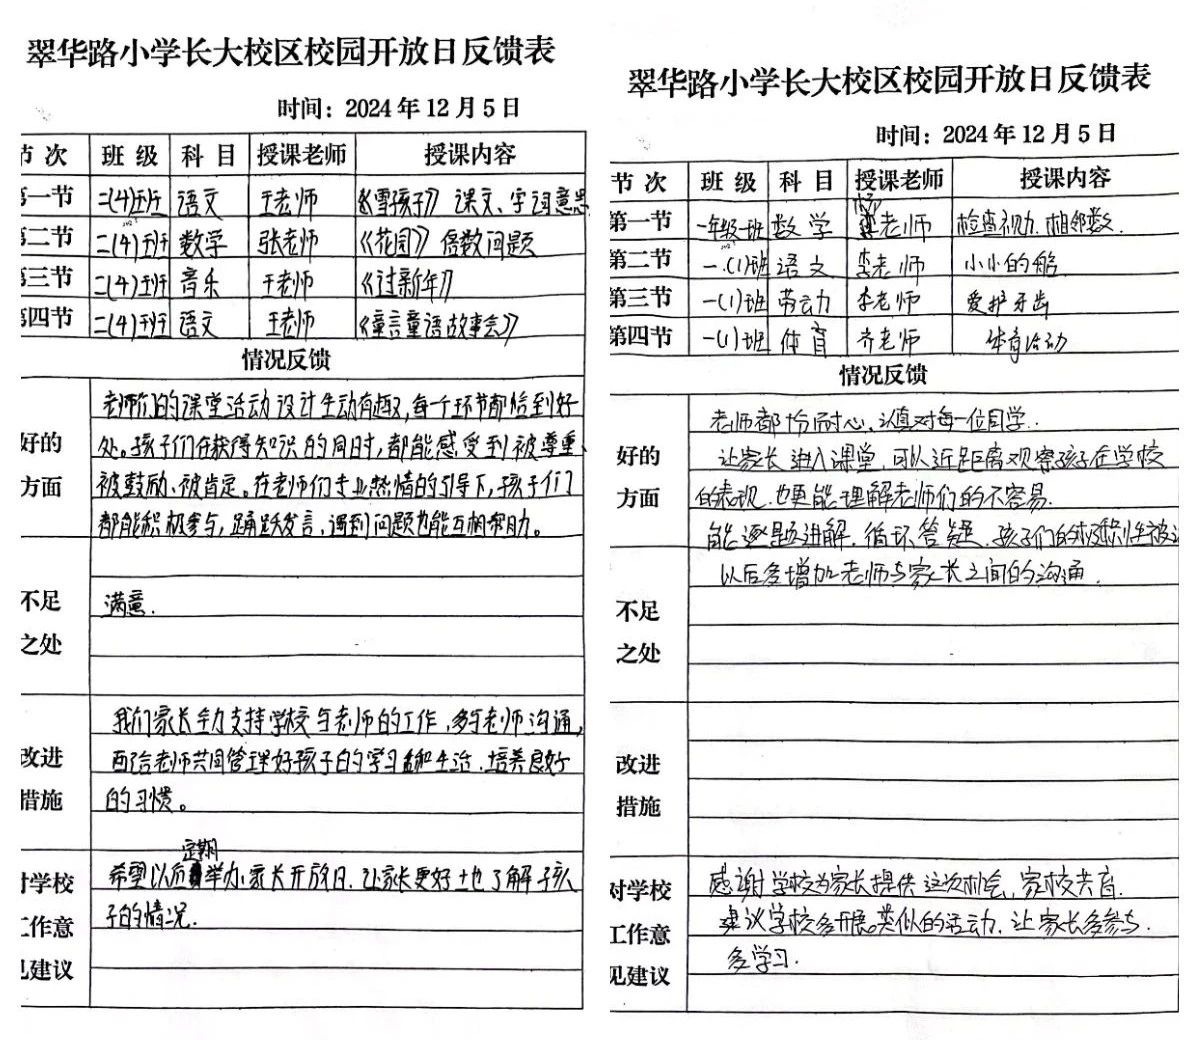 翠华路小学长大校区校园开放日反馈表
时间：2024年12月5日
节次 班级 科目 授课老师 授课内容
第一节 二(4)班 语文 王老师 《雪孩子》课文、字词意思
第二节 二(4)班 数学 张老师 《花园》倍数问题
第三节 二(4)班 音乐 王老师 《过新年》
第四节 二(4)班 语文 王老师 《童言童语故事会》
情况反馈
好的方面
老师们的课堂活动设计生动有趣，每个环节都恰到好
处。孩子们在获得知识的同时，都能感受到被尊重、
被鼓励、被肯定。在老师们专业热情的引导下，孩子们
都能积极参与，踊跃发言，遇到问题也能互相帮助。
不足之处
满意.
改进措施
我们家长全力支持学校与老师的工作，多与老师沟通，
配合老师共同管理好孩子的学习和生活，培养良好
的习惯。
对学校工作意见建议
希望以后定期举办家长开放日，让家长更好地了解孩
子的情况.
翠华路小学长大校区校园开放日反馈表
时间：2024年12月5日
节次 班级 科目 授课老师 授课内容
第一节 一年级一班 数学 杨老师 检查视力.相邻数.
第二节 一.(1)班 语文 李老师 小小的船
第三节 一(1)班 劳动 李老师 爱护牙齿
第四节 一(1)班 体育 齐老师 体育活动
情况反馈
好的方面
老师都十份耐心、认真对每一位同学.
让家长进入课堂，可以近距离观察孩子在学校
的表现.也更能理解老师们的不容易.
能逐题讲解.循环答疑.孩子们的积极性被
不足之处
以后多增加老师与家长之间的沟通.
改进措施
对学校工作意见建议
感谢学校为家长提供这次机会，家校共育.
建议学校多开展类似的活动.让家长多参与.
多学习.